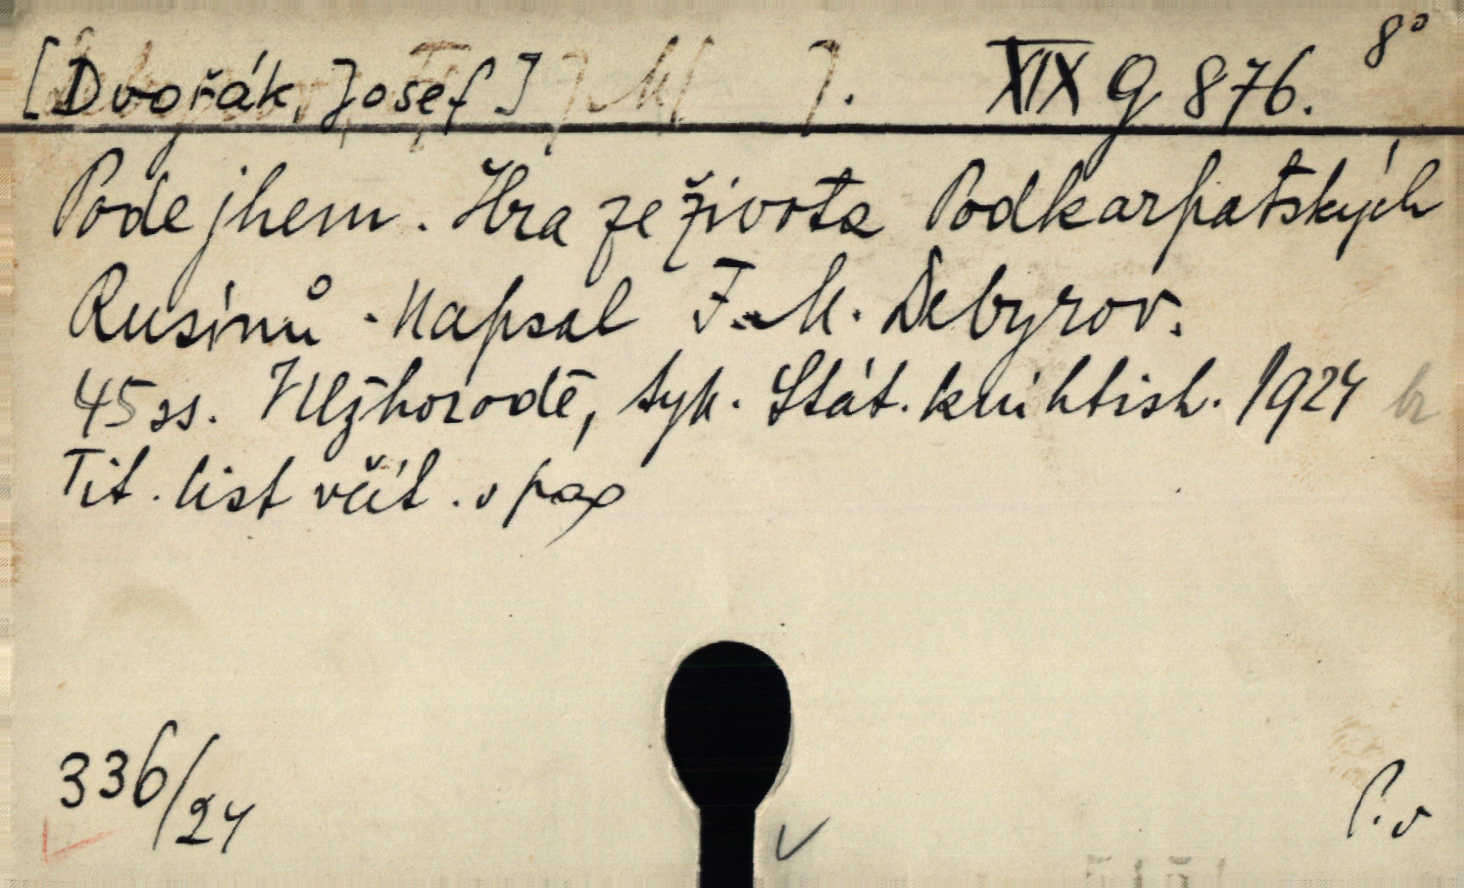 [Dvořák, Josef] XIX G 876. 8°
Pode jhem. Hra ze života Podkarpatských
Rusínů. Napsal J. M. Debyrov.
45 ss. V Užhorodě, typ. Stát. knihtisk. 1924
Tit. list včít. v pag
336/24
P. v